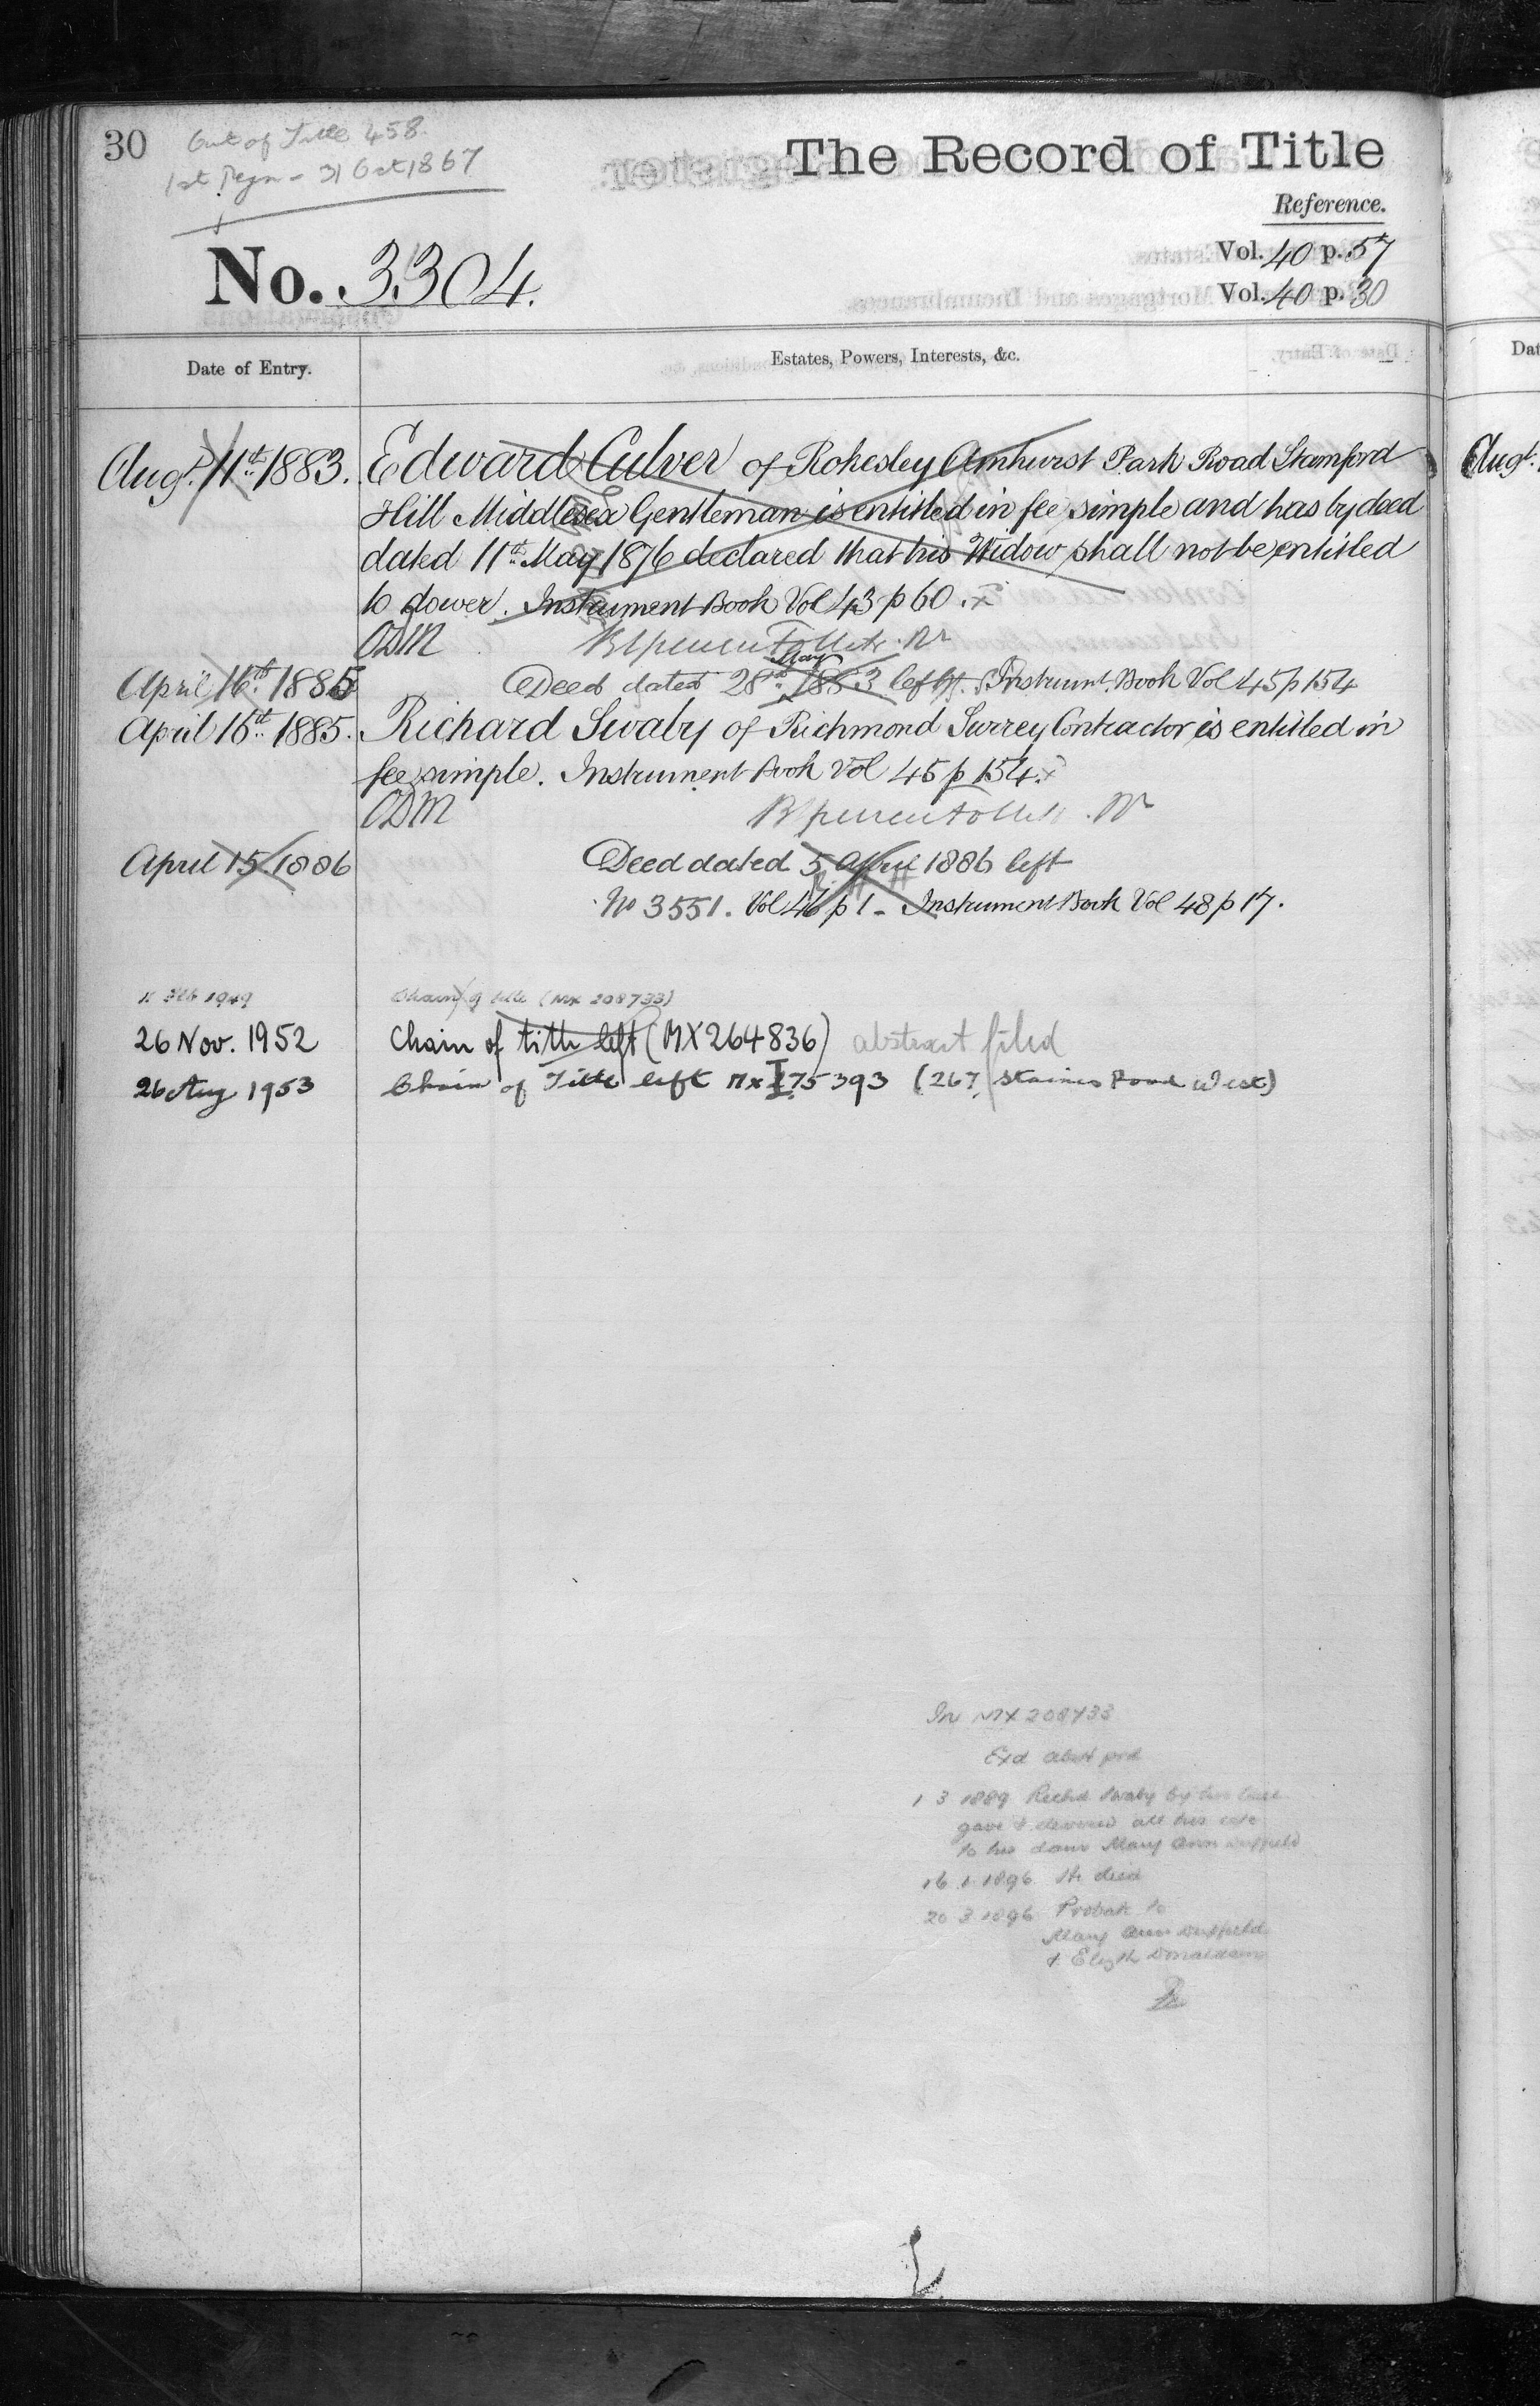 30
Out of Title 458.
1st Regn - 31 Oct 1867
The Record of Title
Reference.
Vol. 40 p. 57
No. 3304.
Vol. 40 p. 30
Date of Entry.
Estates, Powers, Interests, &c.
Augt. 11th 1883.
Edward Culver of Rokesley Amhurst Park Road Stamford
Hill Middlesex Gentleman is entitled in fee simple and has by deed
dated 11th May 1876 declared that his Widow shall not be entitled
to dower. Instrument Book Vol 43 p 60.
ODM
April 16th 1885
Deed dated 28th May 1883 left. Instrumt. Book Vol 45 p 154
April 16th 1885.
Richard Swaby of Richmond Surrey Contractor is entitled in
fee simple. Instrument Book Vol 45 p 154.
ODM
April 15. 1886
Deed dated 5 April 1886 left
No 3551. Vol 46 p 1 - Instrument Book Vol 48 p 17.
Feb 1949
Chain of title (MX 208733)
26 Nov. 1952
Chain of title left (MX264836) abstract filed
26 Aug 1953
Chain of Title left MX 275393 (267, Staines Road West)
In MX 208733
Exd abst prd
1 3 1889 Richd Swaby by his
gave & devised all his
to his daur Mary Ann
16 1 1896 He died
20 3 1896 Probate to
Mary Ann
& Elizth Donaldson
Augt.